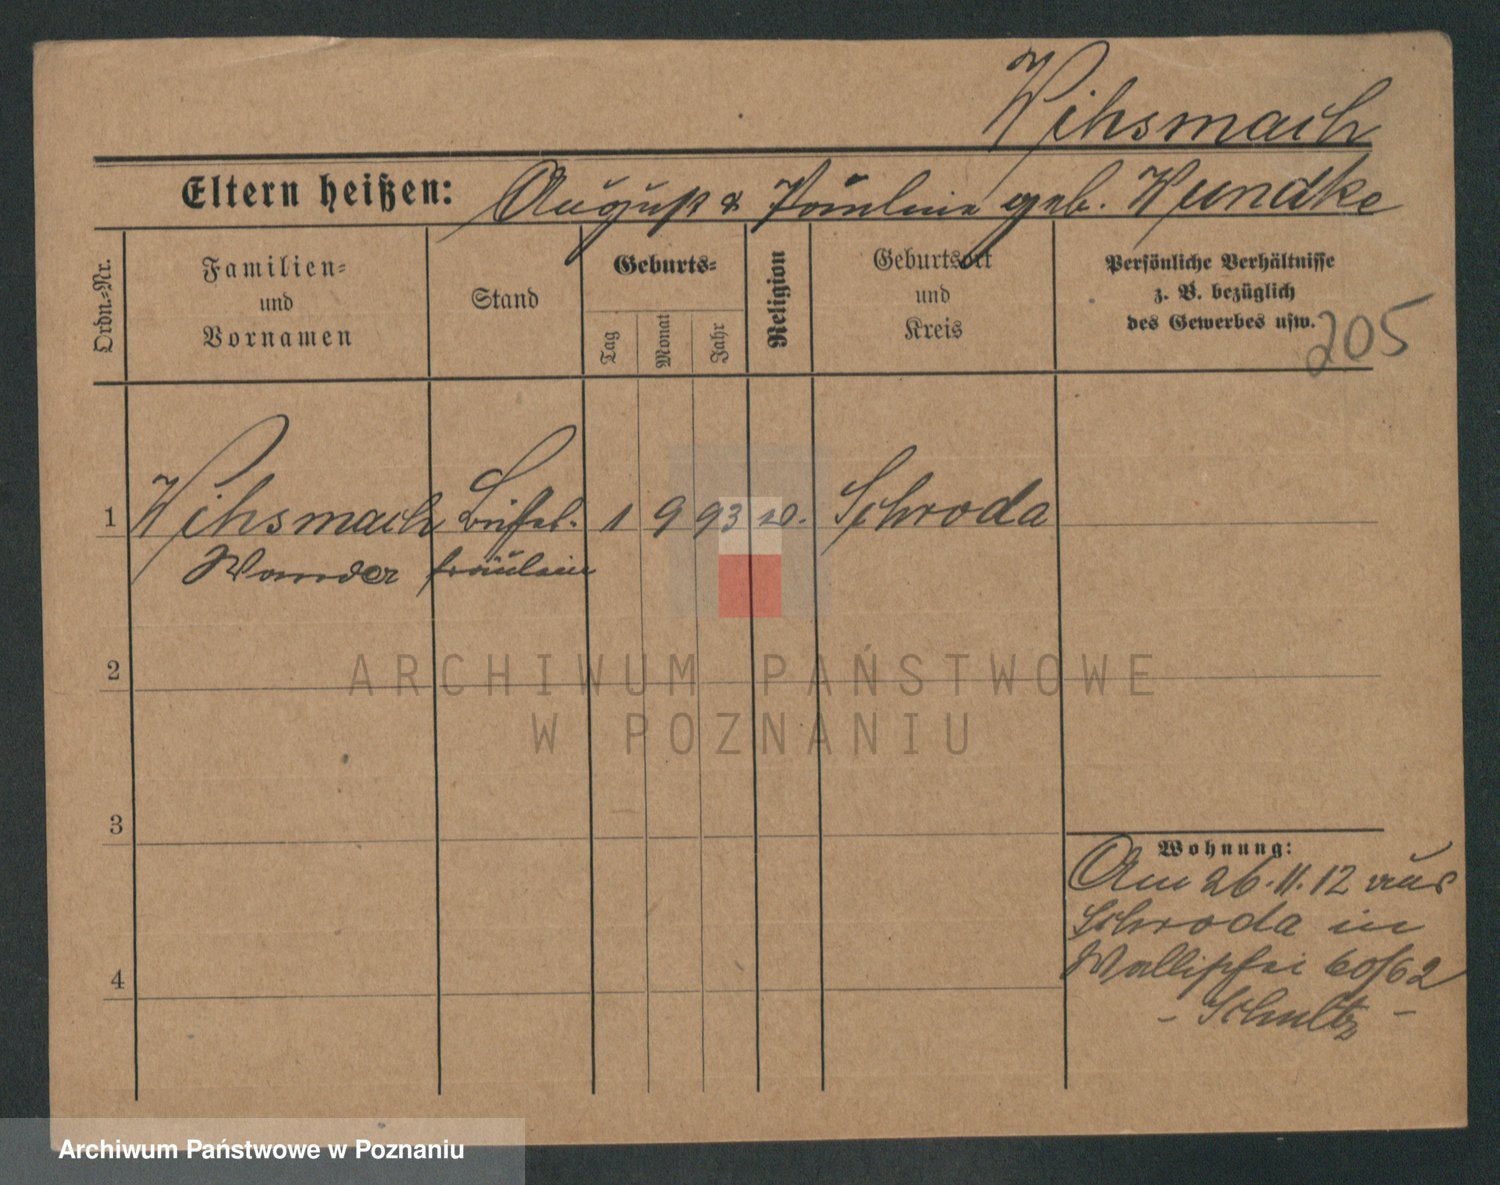 Wihsmach
Eltern heißen: August & Pauline geb. Wundke
Ordn.=Nr.
Familien=
und
Vornamen
Stand
Geburts=
Tag
Monat
Jahr
Religion
Geburtsort
und
Kreis
Persönliche Verhältnisse
z. B. bezüglich
des Gewerbes usw.
205
1 Wihsmach Büffet- 1 9 93 Schroda
Wanda fräulein
2
3
4
Wohnung:
Am 26.11.12 aus
Schroda in
Wallischei 60/62
- Schultz -
ARCHIWUM PAŃSTWOWE
W POZNANIU
Archiwum Państwowe w Poznaniu